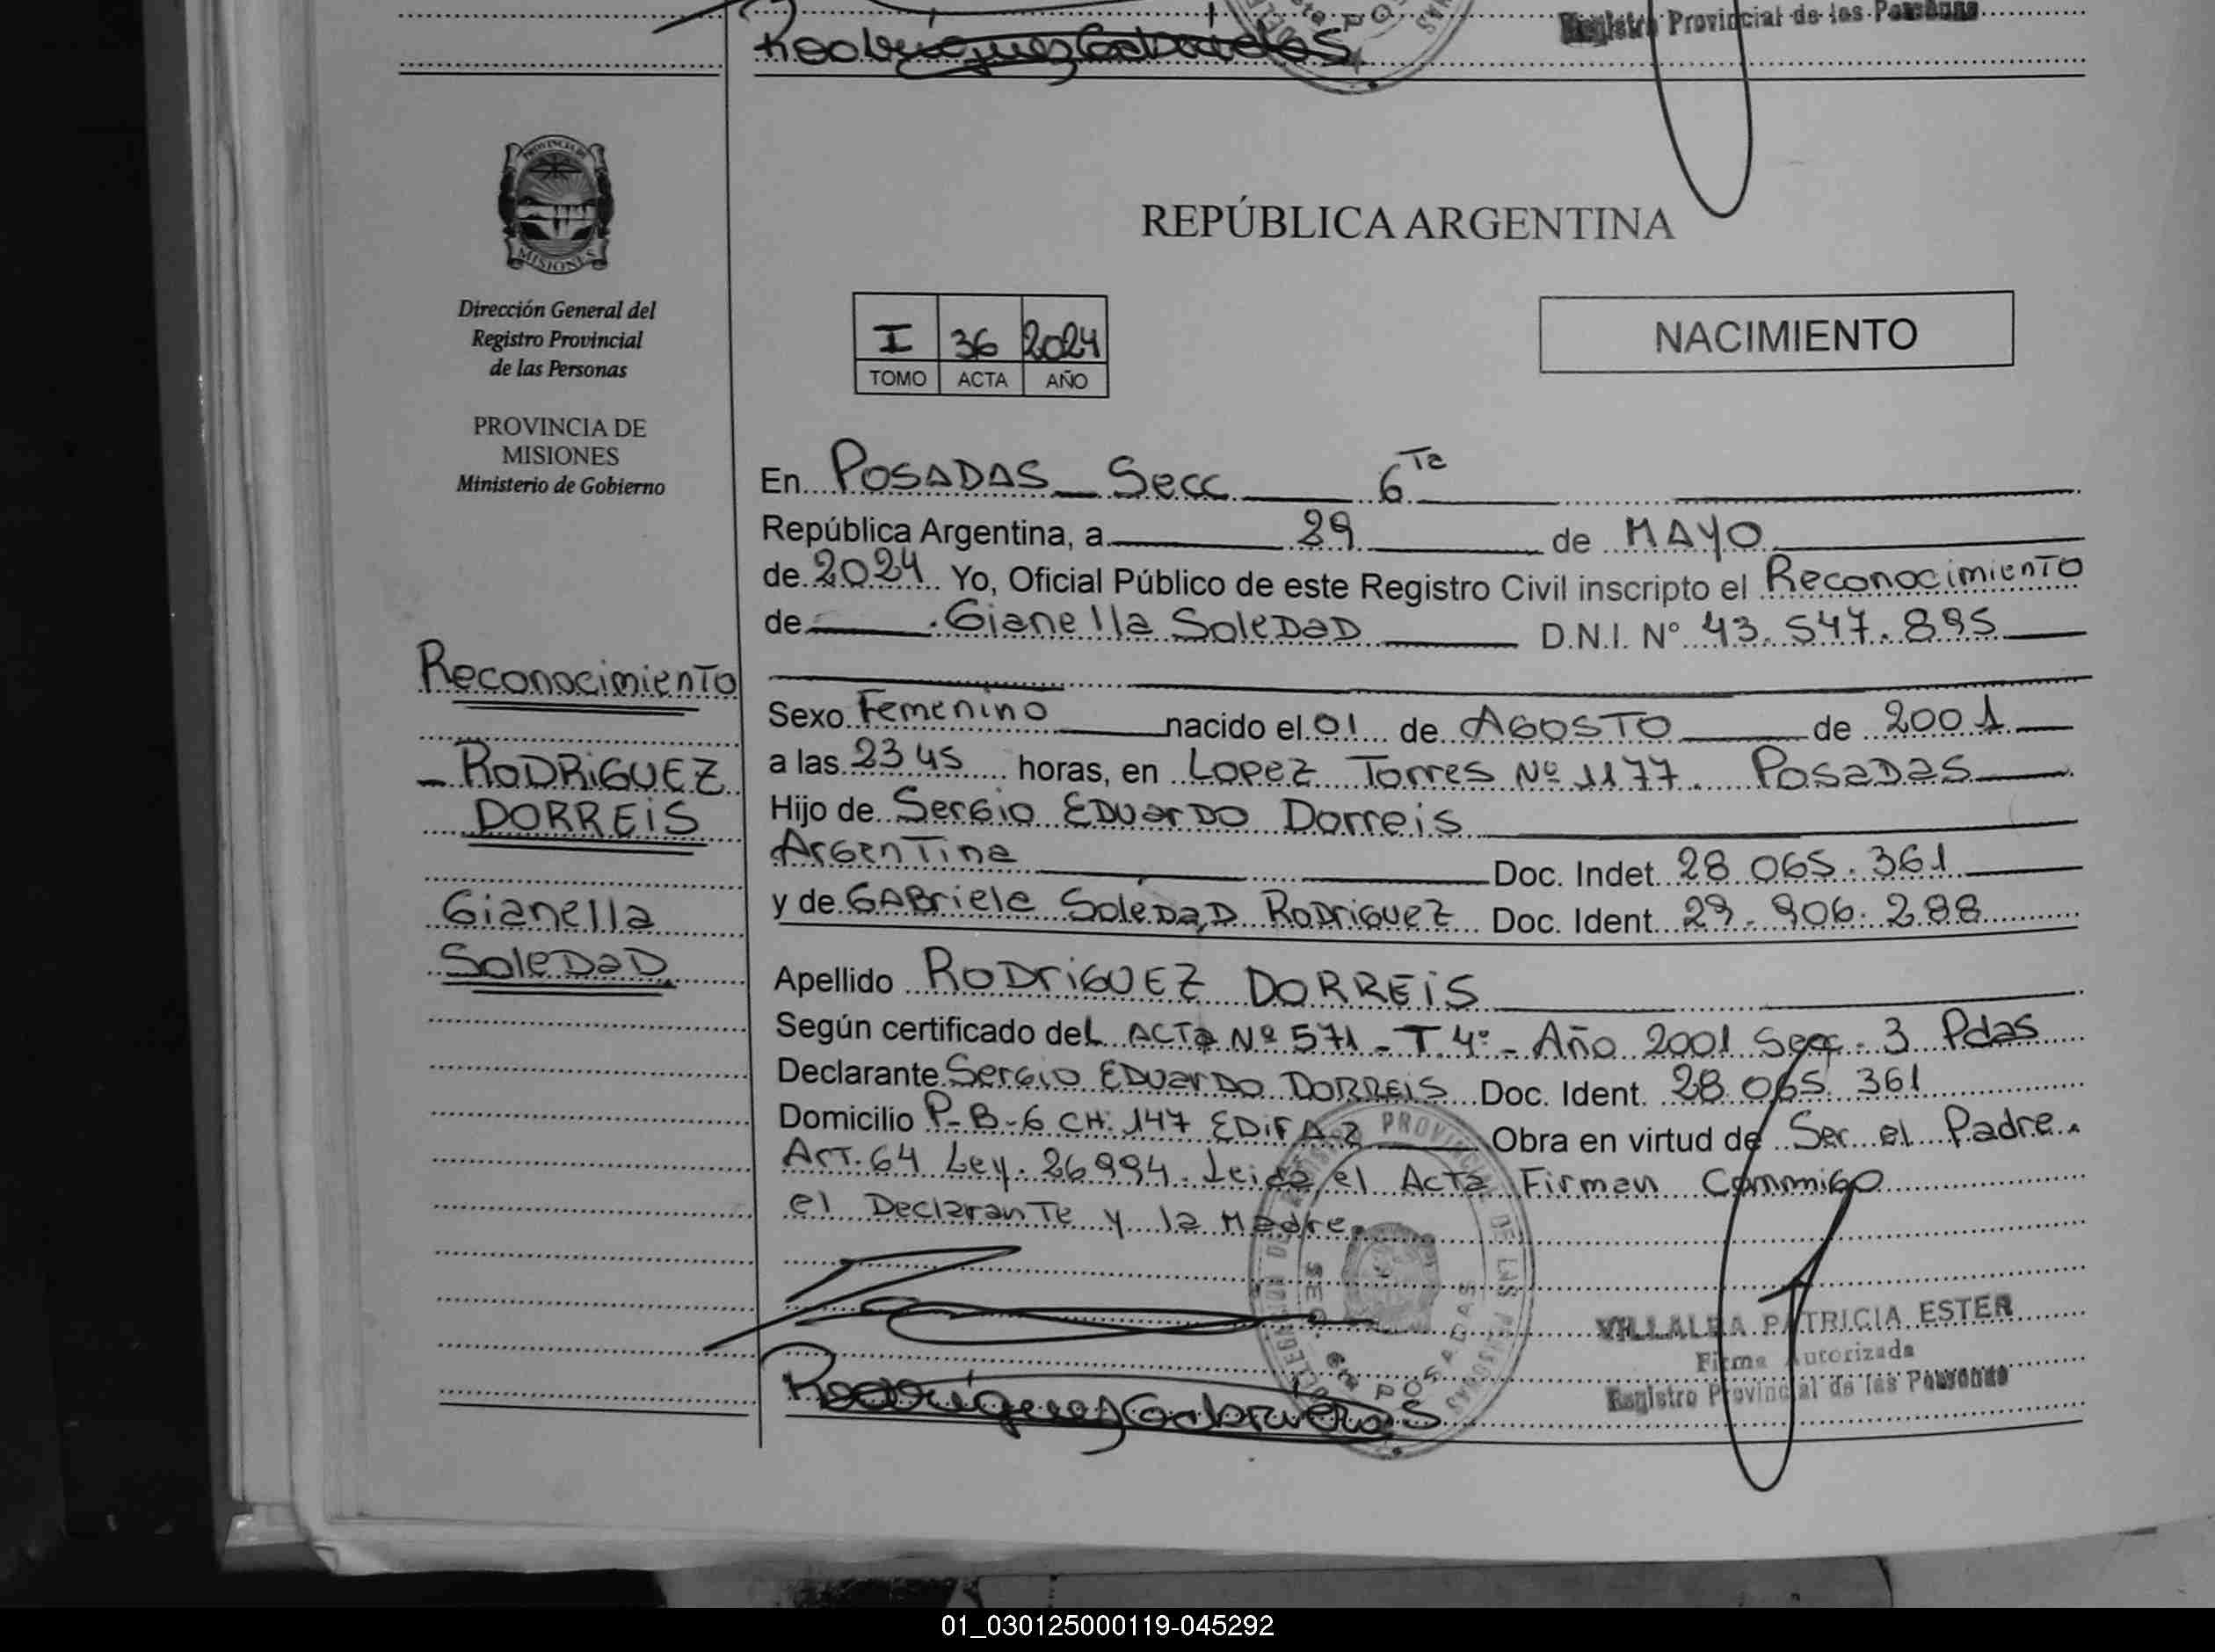 Rodriguez Gabriela S
Registro Provincial de las Personas
PROVINCIA DE
MISIONES
Dirección General del
Registro Provincial
de las Personas
PROVINCIA DE
MISIONES
Ministerio de Gobierno
Reconocimiento
- RODRIGUEZ
DORREIS
Gianella
SoleDaD
REPÚBLICA ARGENTINA
I 36 2024
TOMO ACTA AÑO
NACIMIENTO
En POSADAS Secc 6Ta
República Argentina, a 29 de MAYO
de 2024 Yo, Oficial Público de este Registro Civil inscripto el Reconocimiento
de Gianella SoleDaD D.N.I. Nº 43.547.895
Sexo Femenino nacido el 01 de AGOSTO de 2001
a las 23 45 horas, en Lopez Torres Nº 1177. Posadas
Hijo de Sergio EDuarDo Dorreis
Argentina Doc. Indet. 28 065.361
y de GABriela SoleDaD RoDriguez Doc. Ident. 29.906.288
Apellido RODRIGUEZ DORREIS
Según certificado del ACTa Nº 571 - T.4º - Año 2001 Secc. 3 Pdas
Declarante Sergio EDuarDo DORREIS Doc. Ident. 28.065.361
Domicilio P-B-6 CH.147 EDiF A-2 Obra en virtud de Ser el Padre.
Art.64 Ley.26994. Leida el Acta Firman Conmigo
el Declarante y la Madre.
VILLALBA PATRICIA ESTER
Firma Autorizada
Registro Provincial de las Personas
Rodriguez Gabriela S
01_030125000119-045292